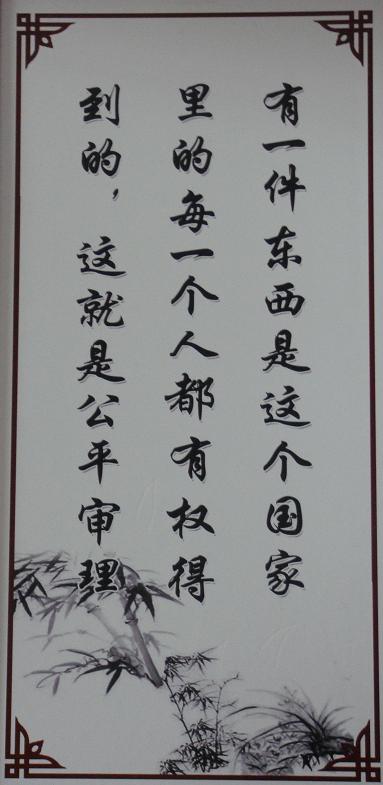 有一件东西是这个国家
里的每一个人都有权得
到的，这就是公平审理